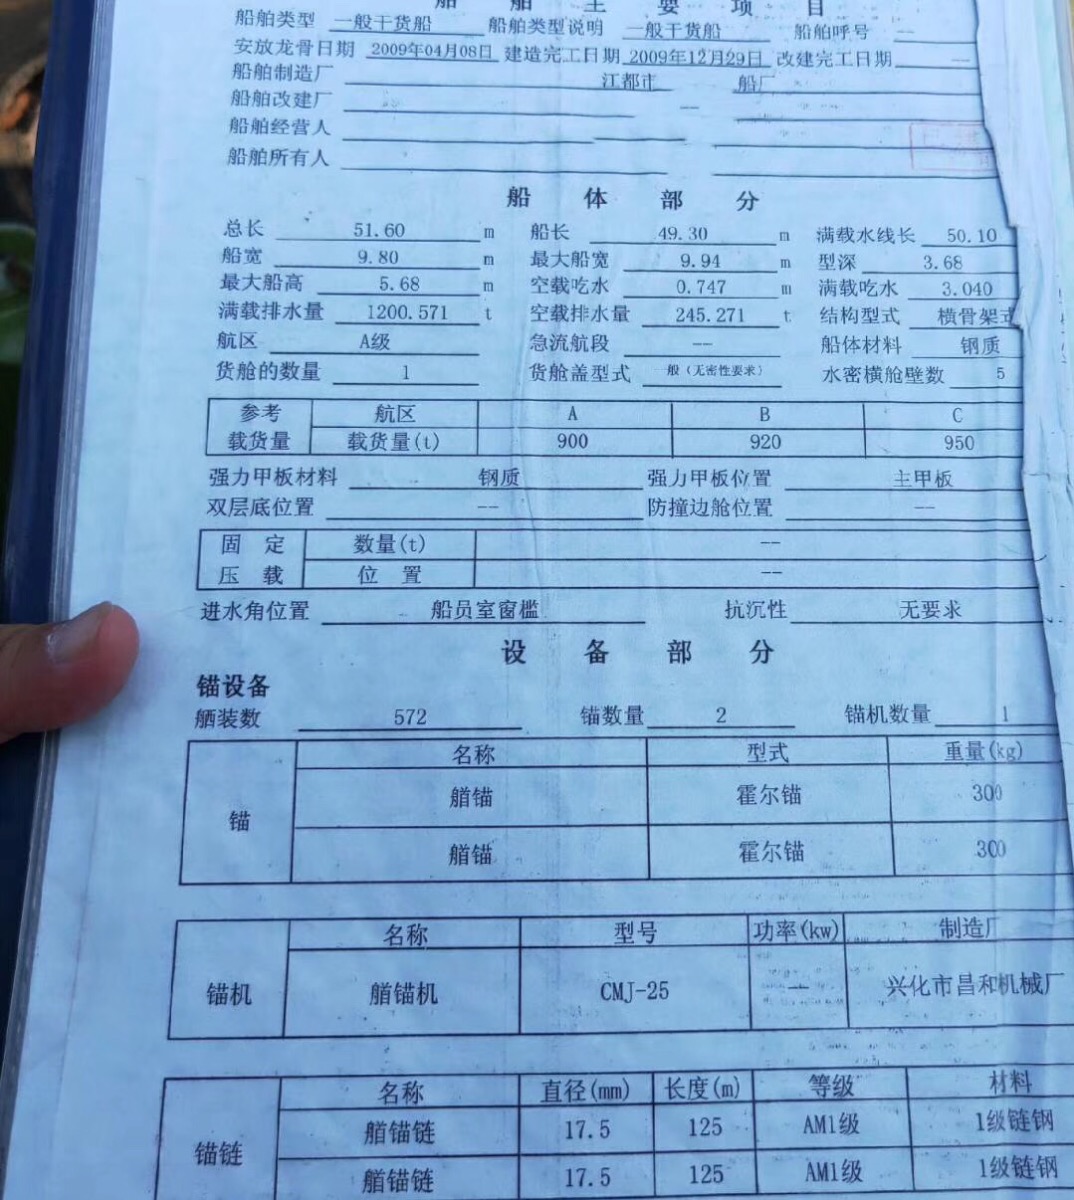 船 舶 主 要 项 目
船舶类型 一般干货船 船舶类型说明 一般干货船 船舶呼号 --
安放龙骨日期 2009年04月08日 建造完工日期 2009年12月29日 改建完工日期 --
船舶制造厂 江都市 船厂
船舶改建厂 --
船舶经营人
船舶所有人
船 体 部 分
总长 51.60 m 船长 49.30 m 满载水线长 50.10
船宽 9.80 m 最大船宽 9.94 m 型深 3.68
最大船高 5.68 m 空载吃水 0.747 m 满载吃水 3.040
满载排水量 1200.571 t 空载排水量 245.271 t 结构型式 横骨架式
航区 A级 急流航段 -- 船体材料 钢质
货舱的数量 1 货舱盖型式 般（无密性要求） 水密横舱壁数 5
参考 航区 A B C
载货量 载货量(t) 900 920 950
强力甲板材料 钢质 强力甲板位置 主甲板
双层底位置 -- 防撞边舱位置 --
固 定 数量(t) --
压 载 位 置 --
进水角位置 船员室窗槛 抗沉性 无要求
设 备 部 分
锚设备
舾装数 572 锚数量 2 锚机数量 1
名称 型式 重量(kg)
锚 艏锚 霍尔锚 300
艏锚 霍尔锚 300
名称 型号 功率(kw) 制造厂
锚机 艏锚机 CMJ-25 -- 兴化市昌和机械厂
名称 直径(mm) 长度(m) 等级 材料
锚链 艏锚链 17.5 125 AM1级 1级链钢
艏锚链 17.5 125 AM1级 1级链钢